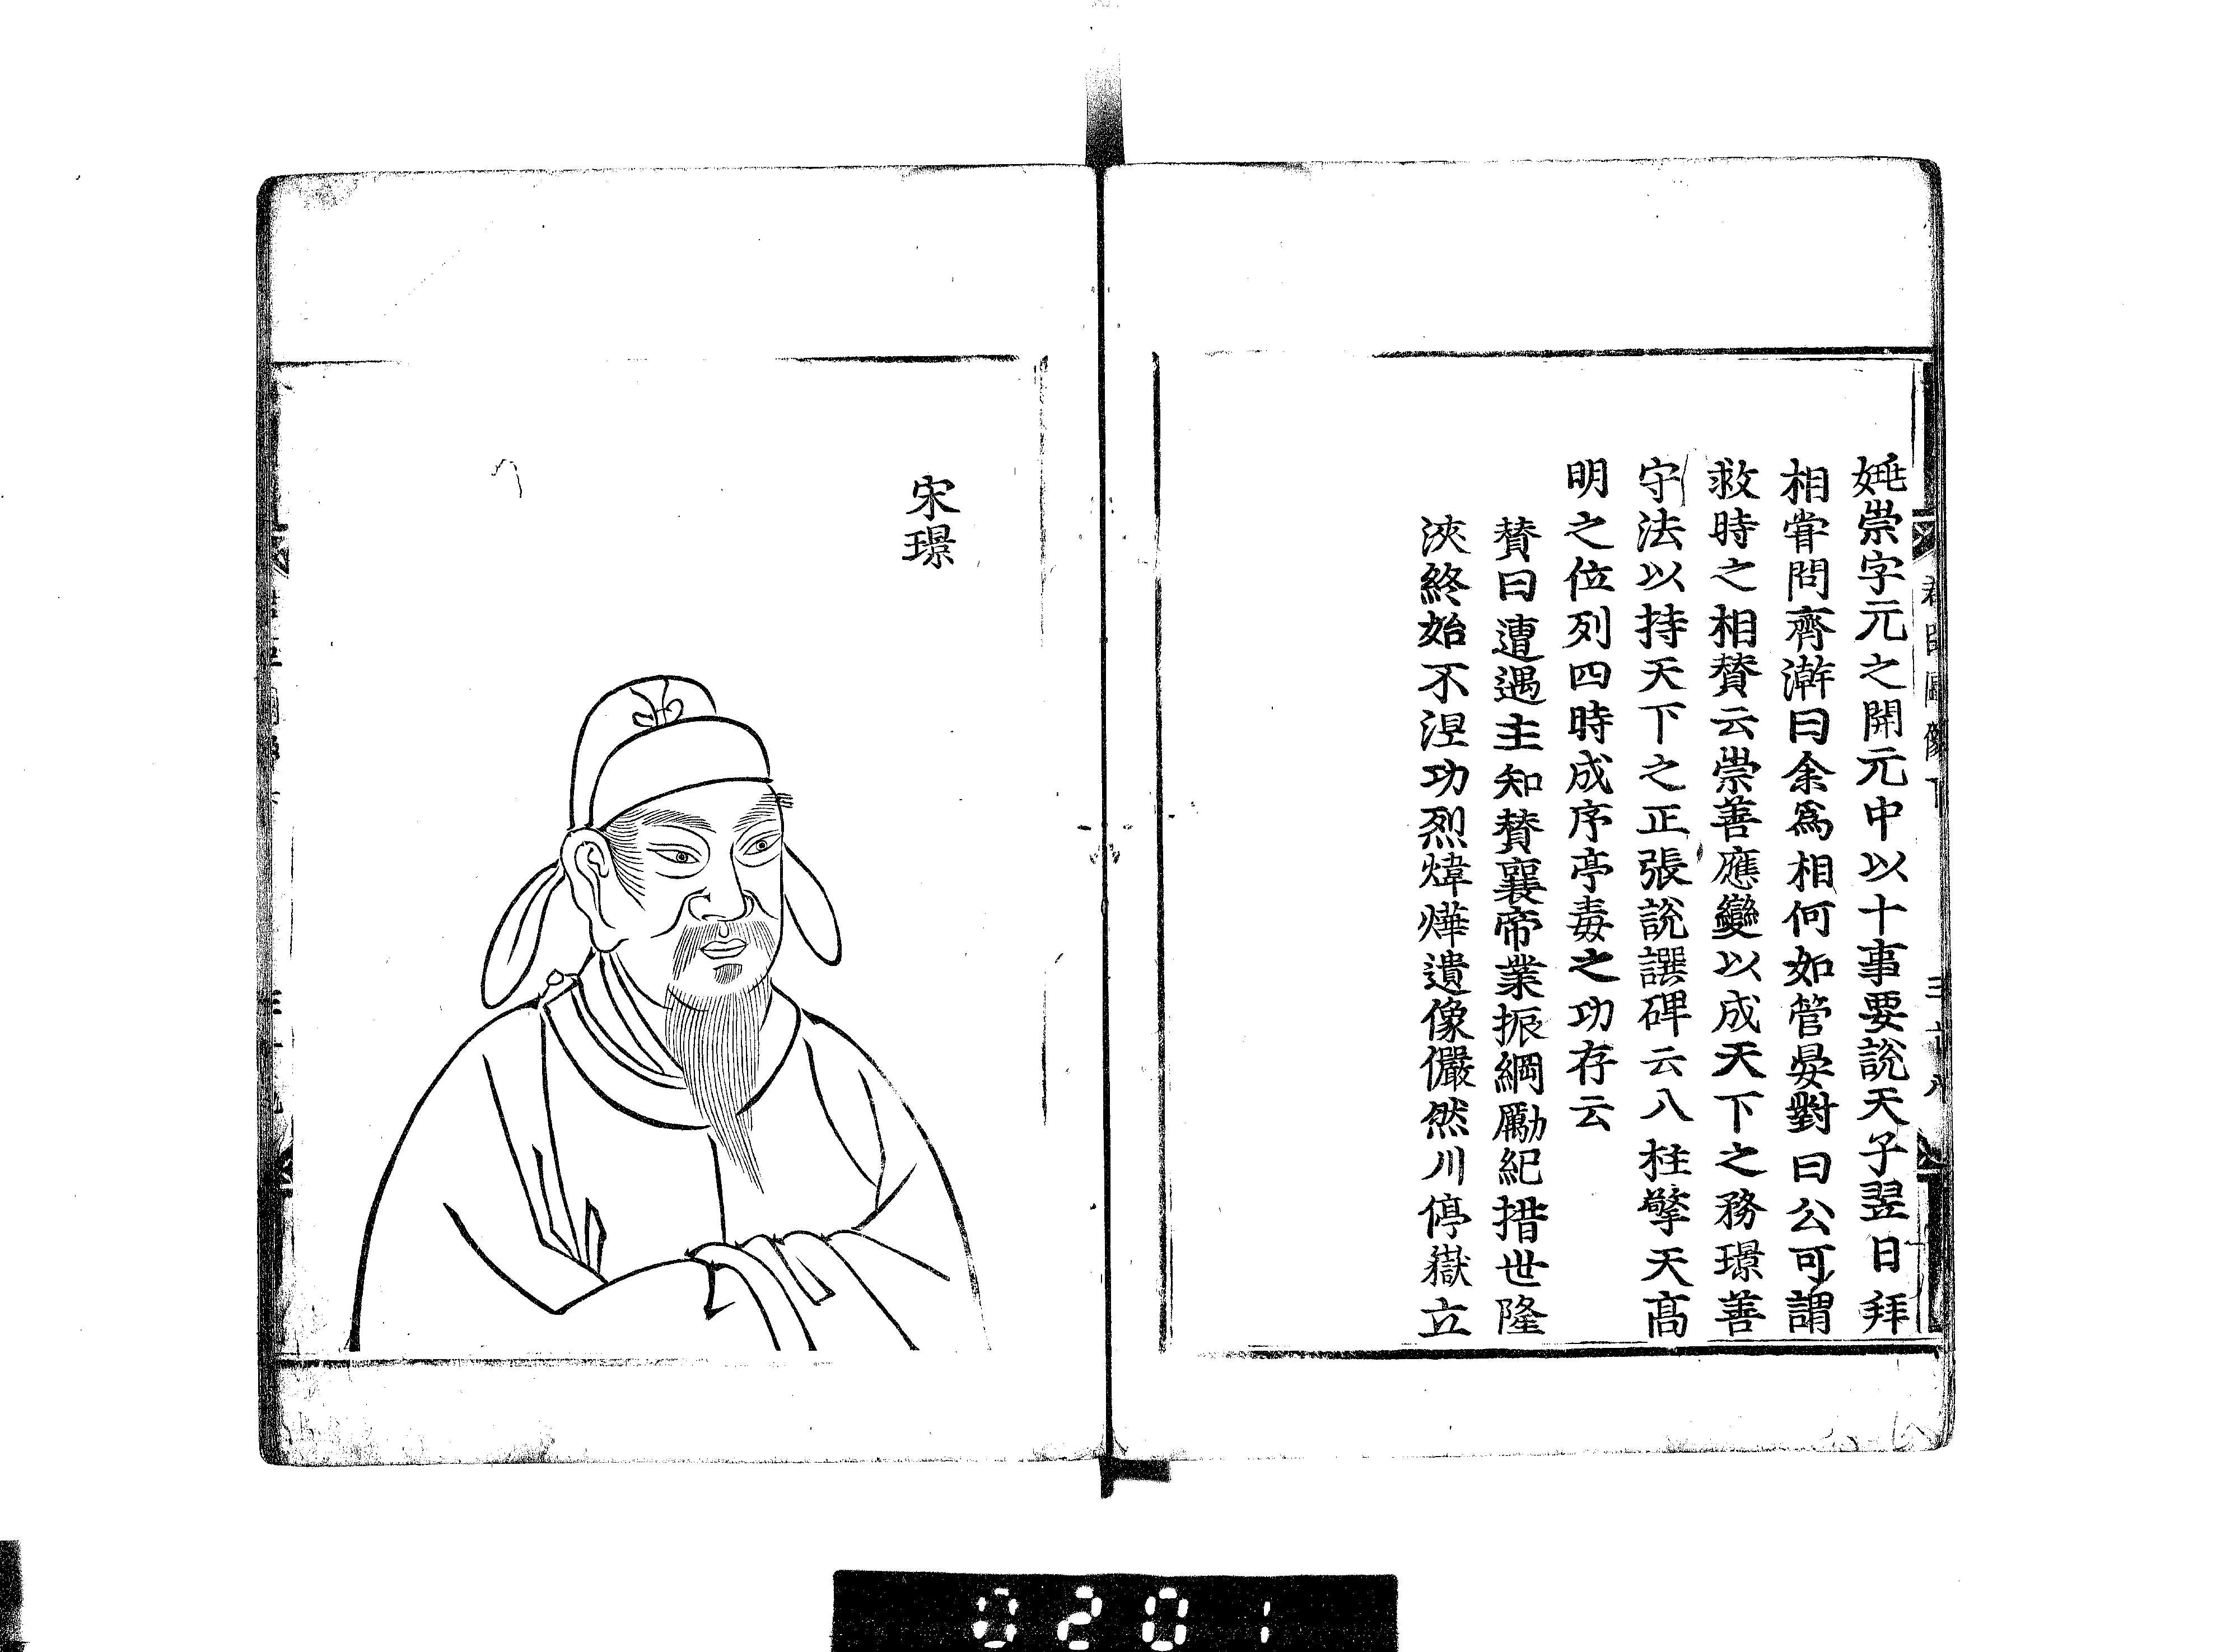 姚崇字元之開元中以十事要說天子翌日拜
相甞問齊澣曰余爲相何如管晏對曰公可謂
救時之相賛云崇善應變以成天下之務璟善
守法以持天下之正張說譔碑云八柱擎天髙
明之位列四時成序亭毒之功存云
賛曰遭遇主知賛襄帝業振綱勵紀措世隆
浹終始不涅功烈煒燁遺像儼然川停嶽立
宋璟
0201